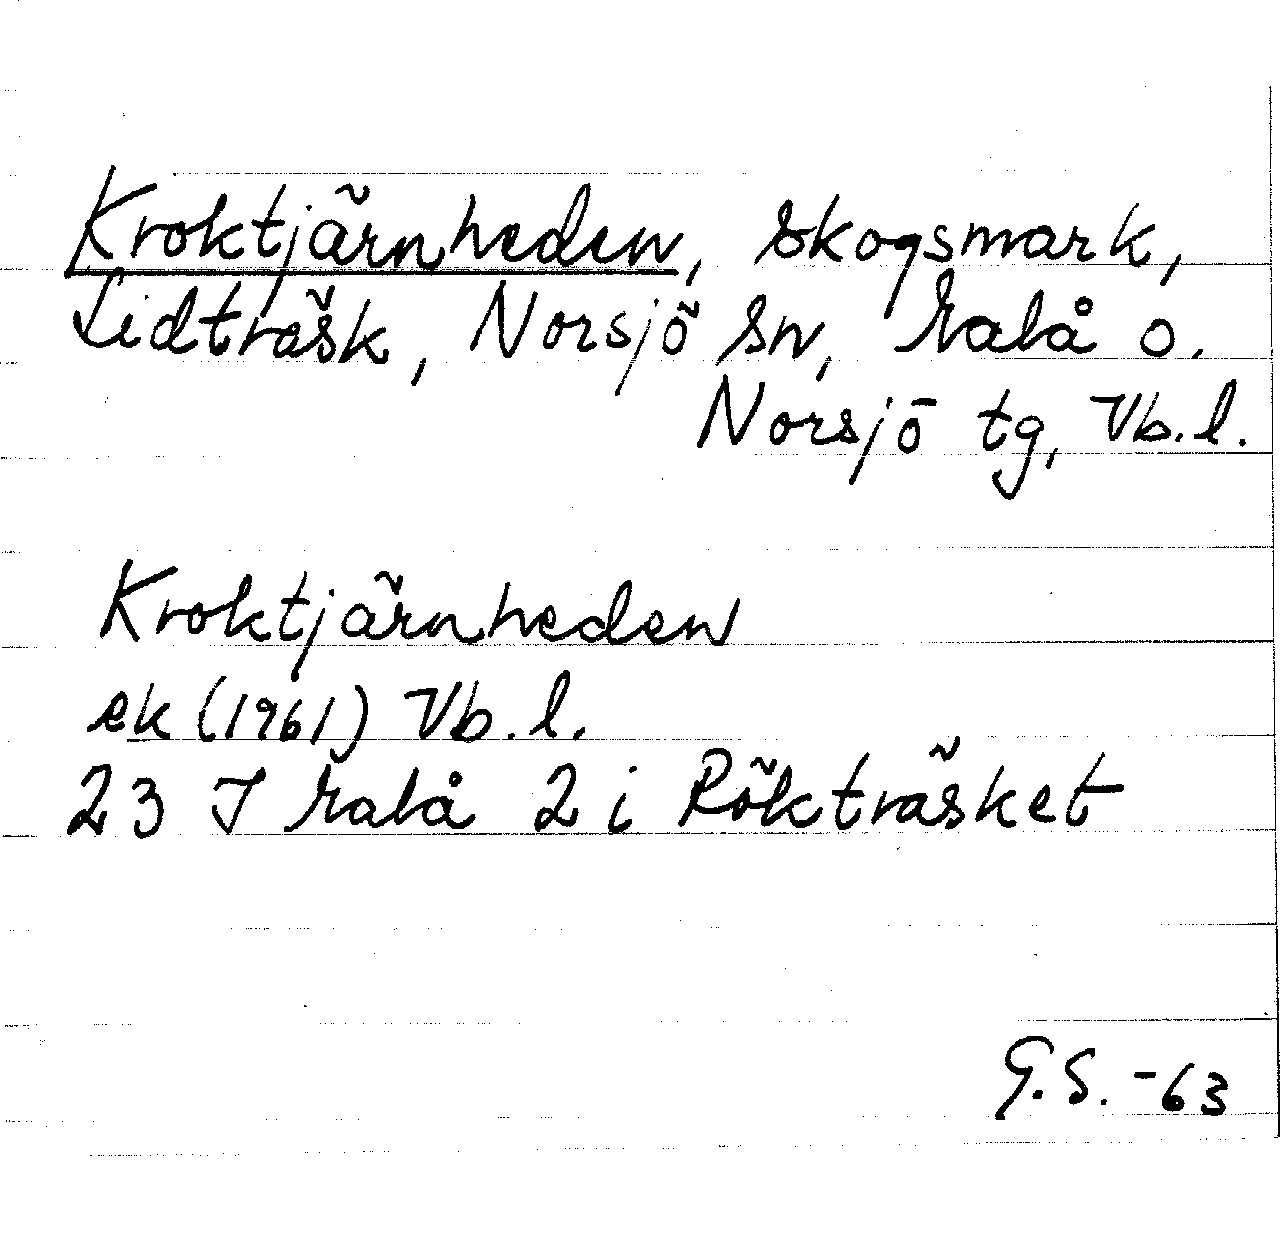 Kroktjärnheden, skogsmark,
Lidträsk, Norsjö sn, Malå o.
Norsjö tg, Vb. l.
Kroktjärnheden
ek (1961) Vb. l.
23 I Malå 2 i Rökträsket
G. S. -63